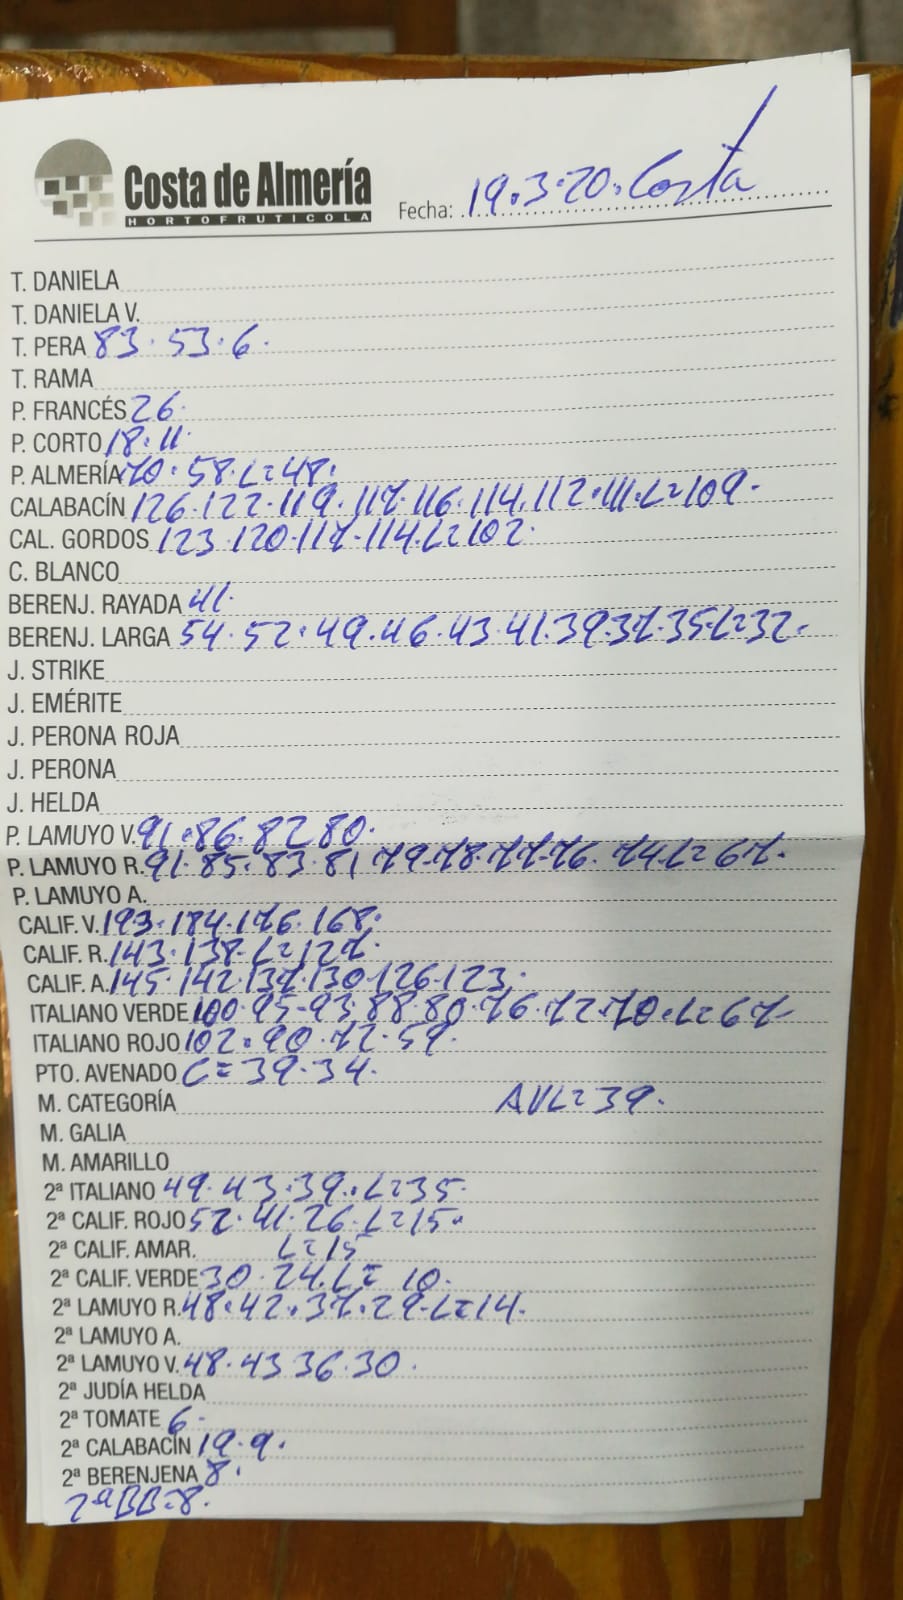 Costa de Almería
HORTOFRUTICOLA
Fecha: 19.3.20. Costa
T. DANIELA
T. DANIELA V.
T. PERA 83. 53. 6.
T. RAMA
P. FRANCÉS 26.
P. CORTO 18. 11.
P. ALMERÍA 70. 58. L=48.
CALABACÍN 126. 122. 119. 117. 116. 114. 112. 111. L=109.
CAL. GORDOS 123. 120. 117. 114. L=102.
C. BLANCO
BERENJ. RAYADA 41.
BERENJ. LARGA 54. 52. 49. 46. 43. 41. 39. 37. 35. L=32.
J. STRIKE
J. EMÉRITE
J. PERONA ROJA
J. PERONA
J. HELDA
P. LAMUYO V. 91. 86. 82 80.
P. LAMUYO R. 91. 85. 83. 81 79. 78. 77. 76. 74. L=67.
P. LAMUYO A.
CALIF. V. 193. 184. 176. 168.
CALIF. R. 143. 138. L=127.
CALIF. A. 145. 142. 137. 130. 126. 123.
ITALIANO VERDE 100. 95. 93. 88. 80. 76. 72. 70. L=67
ITALIANO ROJO 102. 90. 72. 59.
PTO. AVENADO C=39. 34.
M. CATEGORÍA AVL=39.
M. GALIA
M. AMARILLO
2ª ITALIANO 49. 43. 39. L=35.
2ª CALIF. ROJO 52. 41. 26. L=15.
2ª CALIF. AMAR. L=15
2ª CALIF. VERDE 30. 24. L= 10.
2ª LAMUYO R. 48. 42. 37. 29. L=14.
2ª LAMUYO A.
2ª LAMUYO V. 48. 43 36. 30.
2ª JUDÍA HELDA
2ª TOMATE 6.
2ª CALABACÍN 19. 9.
2ª BERENJENA 8.
2ª BB=8.